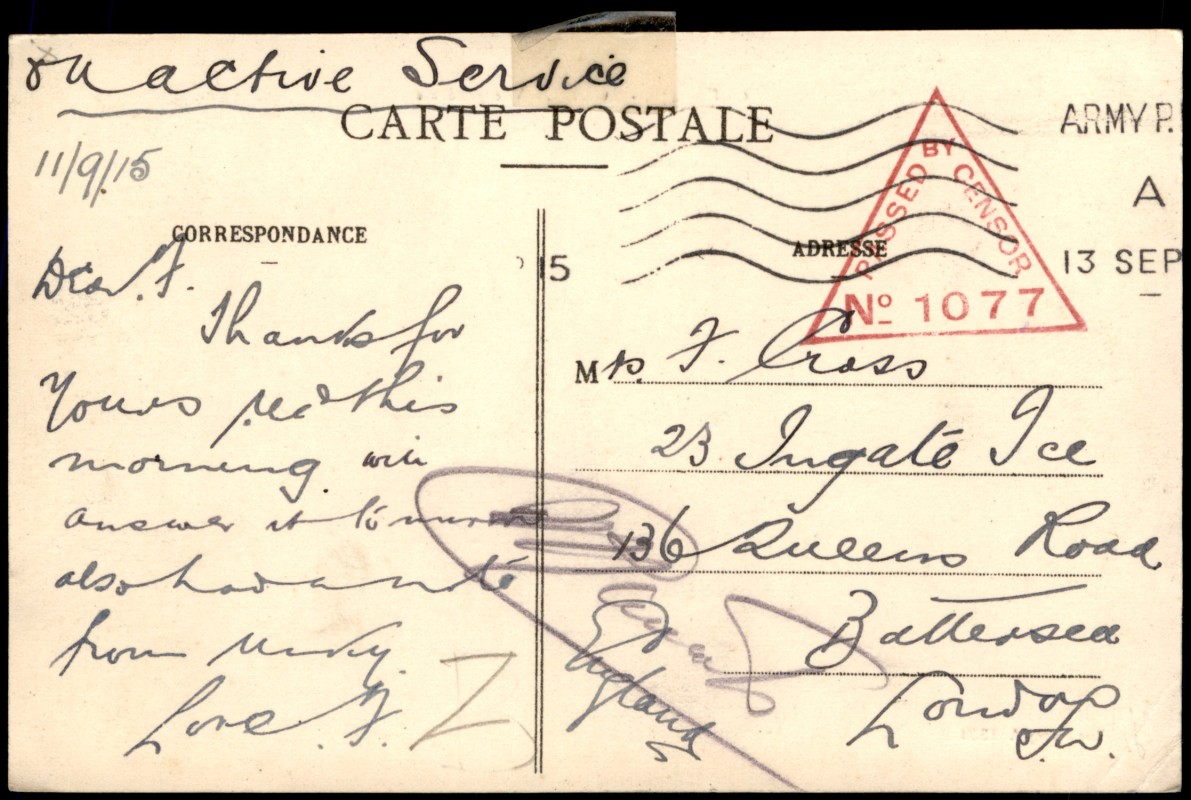 On active Service
CARTE POSTALE
11/9/15
CORRESPONDANCE
Dear F.
Thanks for
Yours recd this
morning will
answer it
also had a note
from
Love. F.
15
ARMY P.
A
13 SEP
PASSED BY CENSOR
No 1077
ADRESSE
Mrs. F. Cross
23 Ingate Ice
136 Queens Road
Battersea
London
S.W.
England